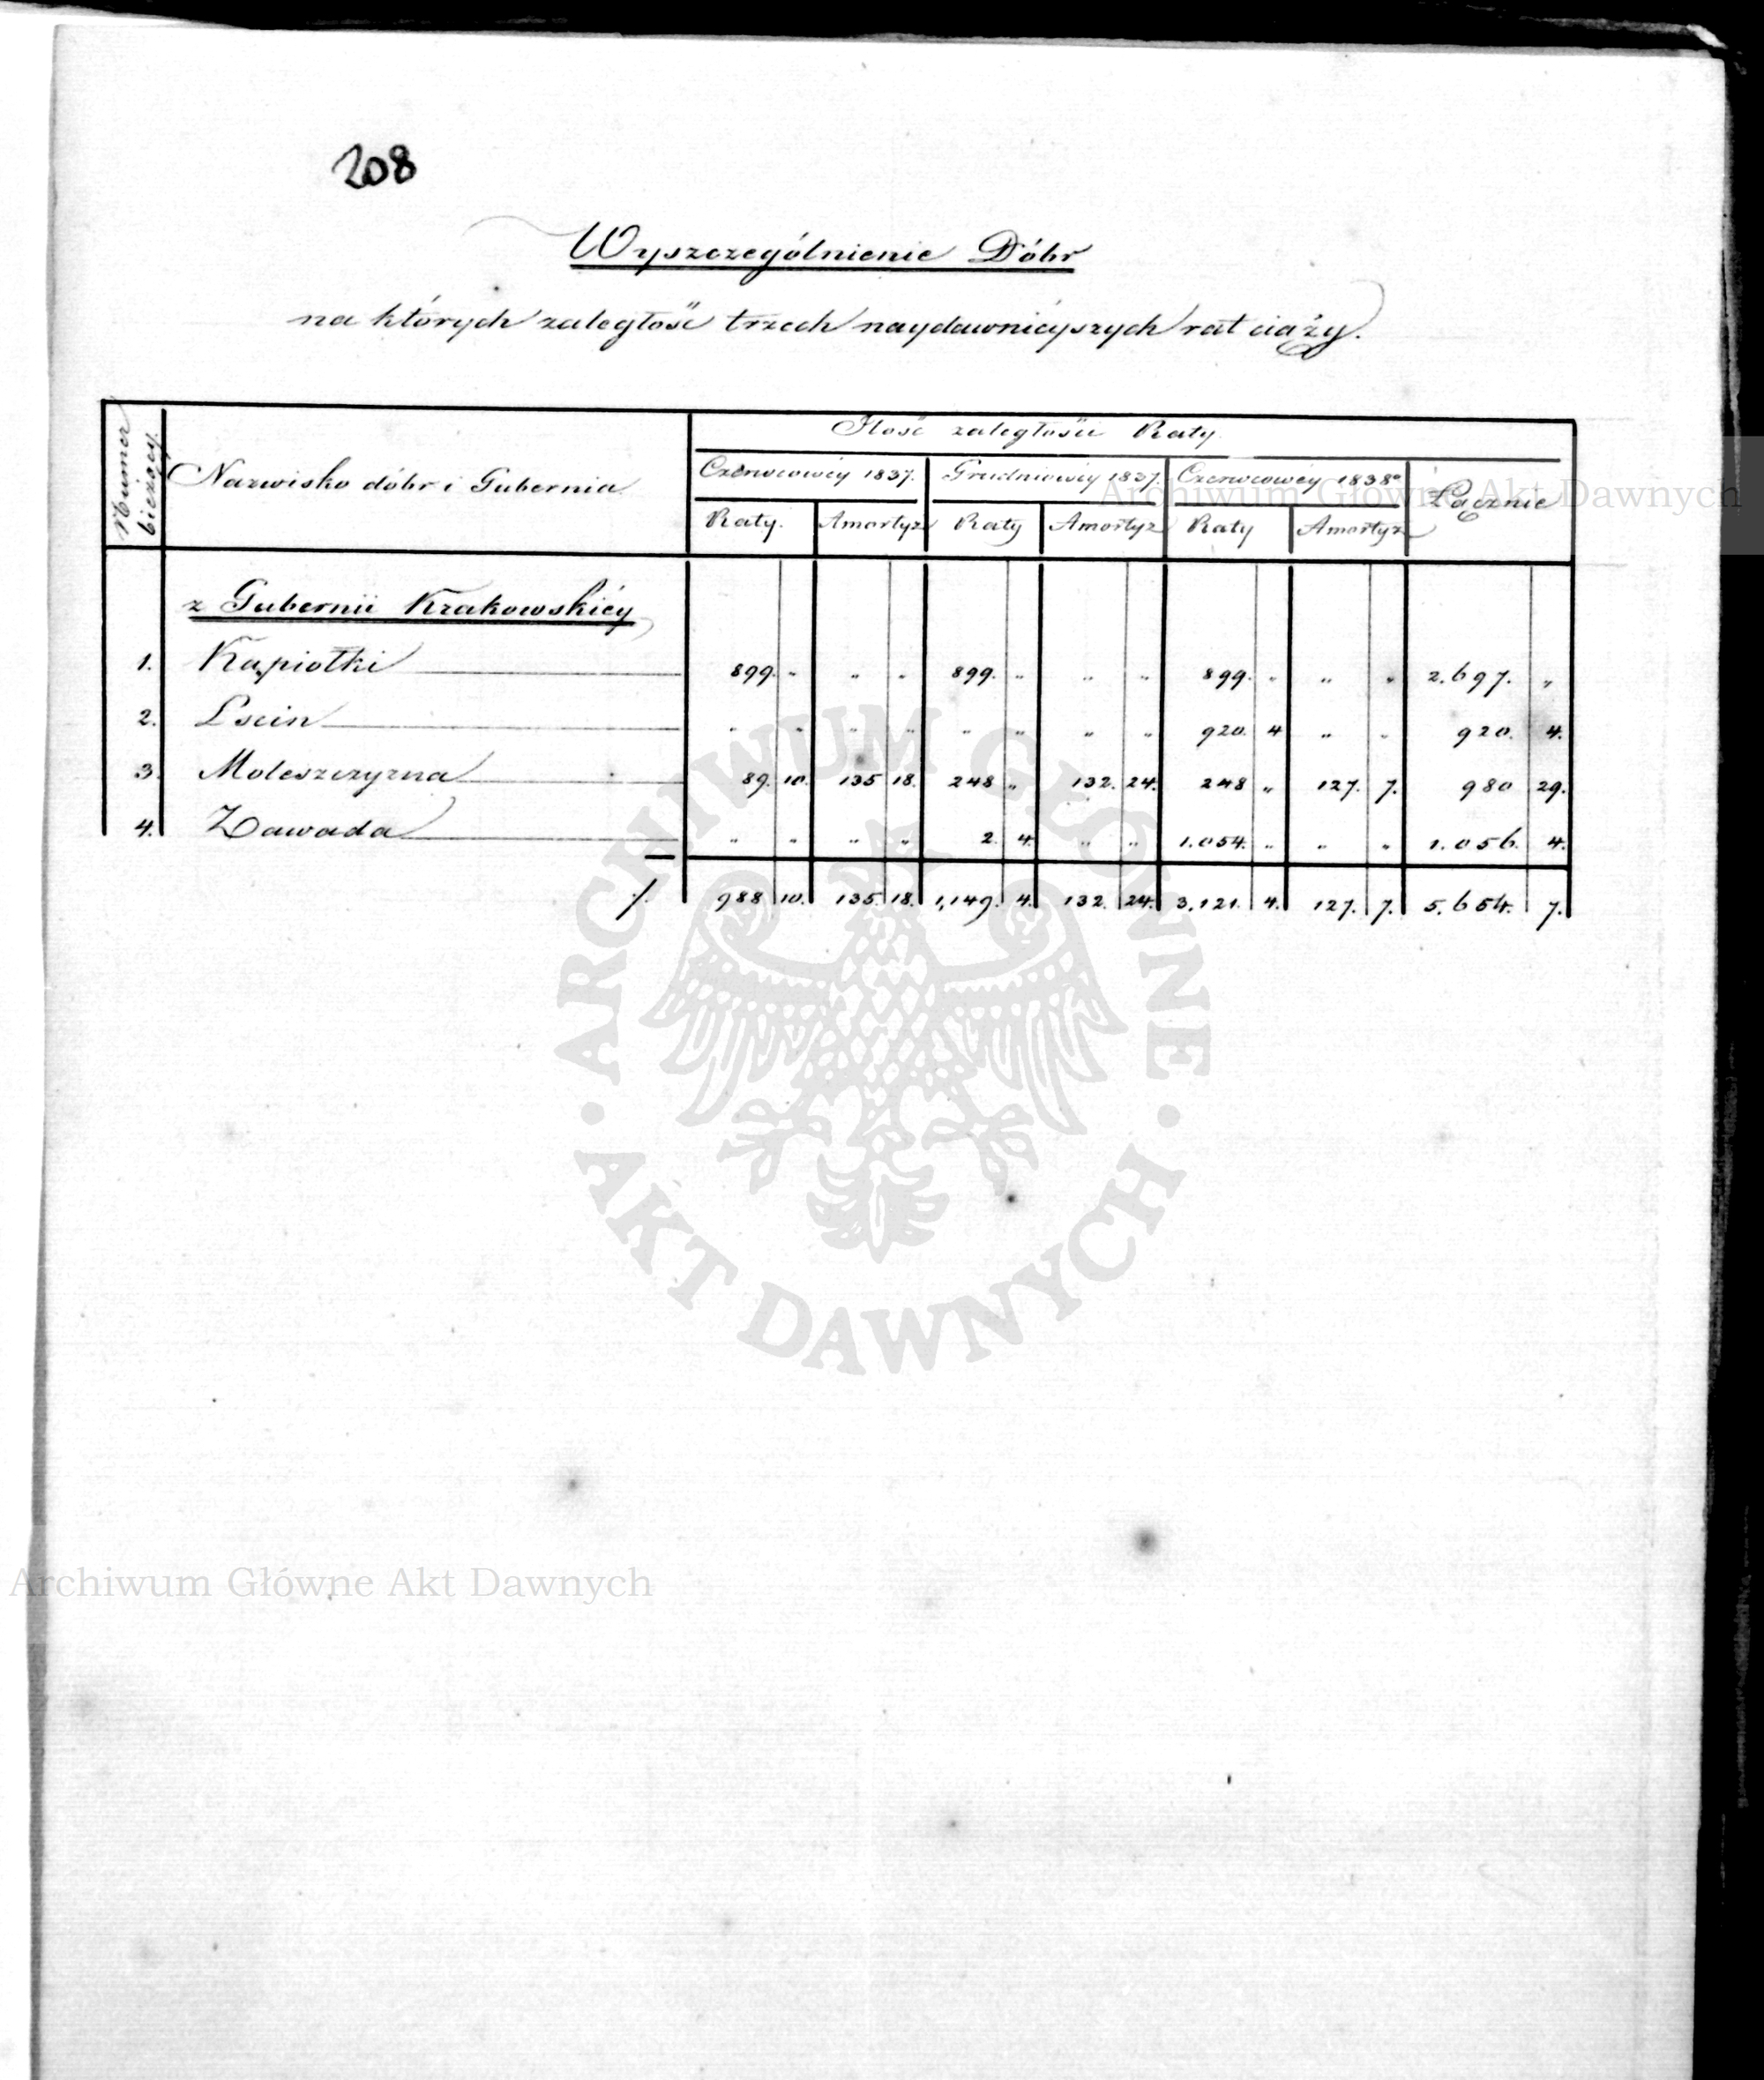 208
Wyszczególnienie Dóbr
na których zaległość trzech naydawnieyszych rat ciąży.
Numer bieżący.
Nazwisko dóbr i Gubernia
Ilość zaległości Raty
Czerwcowéy 1837. Grudniowéy 1837. Czerwcowéy 1838º Łącznie
Raty. Amortyz Raty Amortyz Raty Amortyz
z Gubernii Krakowskiéy
1. Kąpiołki 899. " " " 899. " " " 899. " " " 2.697. "
2. Łscin " " " " " " " " 920. 4 " " 920. 4.
3. Moleszczyzna 89. 10. 135 18. 248 " 132. 24. 248 " 127. 7. 980 29.
4. Zawada " " " " 2. 4. " " 1.054. " " " 1.056. 4.
/. 988 10. 135. 18. 1,149. 4. 132. 24. 3,121. 4. 127. 7. 5.654. 7.
Archiwum Główne Akt Dawnych
ARCHIWUM GŁÓWNE · AKT DAWNYCH ·
Archiwum Główne Akt Dawnych